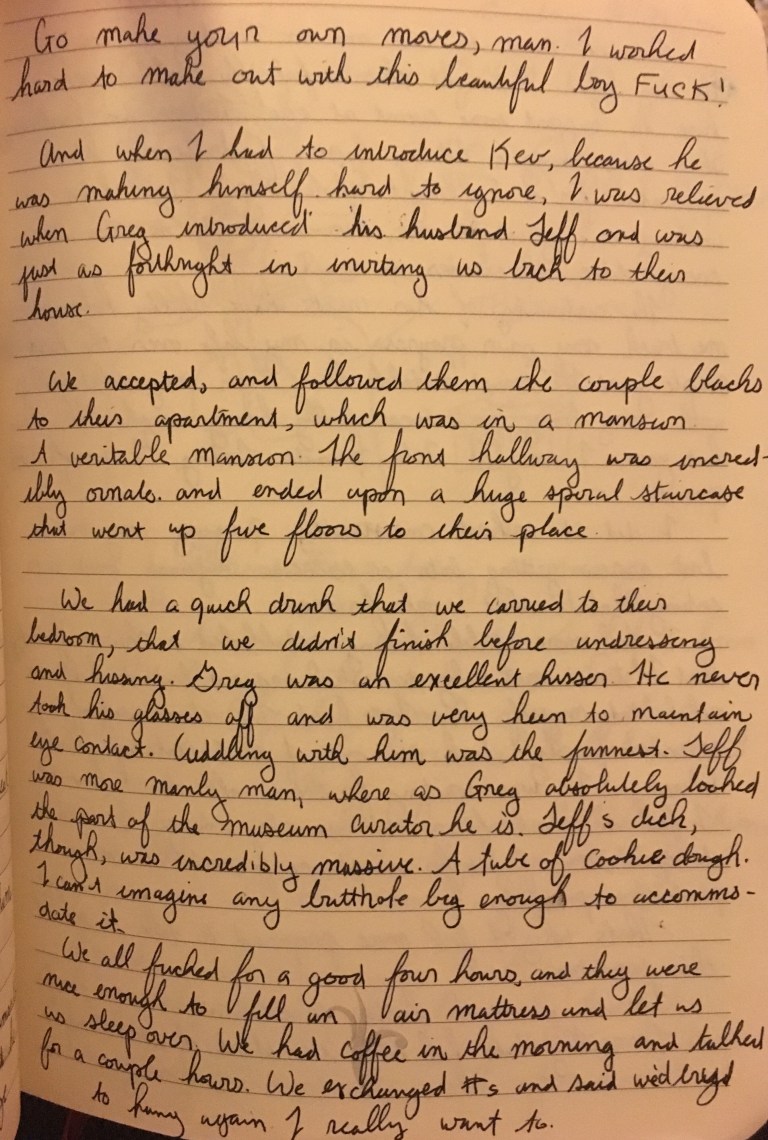 Go make your own moves, man. I worked
hard to make out with this beautiful boy FUCK!
And when I had to introduce Kev, because he
was making himself hard to ignore, I was relieved
when Greg introduced his husband Jeff and was
just as forthright in inviting us back to their
house.
We accepted, and followed them the couple blocks
to their apartment, which was in a mansion
A veritable mansion. The front hallway was incred-
ibly ornate. and ended upon a huge spiral staircase
that went up five floors to their place.
We had a quick drink that we carried to their
bedroom, that we didn't finish before undressing
and kissing. Greg was an excellent kisser He never
took his glasses off and was very keen to maintain
eye contact. Cuddling with him was the funnest. Jeff
was more manly man, where as Greg absolutely looked
the part of the museum curator he is. Jeff's dick,
though, was incredibly massive. A tube of cookie dough.
I can't imagine any butthole big enough to accommo-
date it.
We all fucked for a good four hours, and they were
nice enough to fill an air mattress and let us
us sleep over. We had coffee in the morning and talked
for a couple hours. We exchanged #s and said we'd
to hang again I really want to.